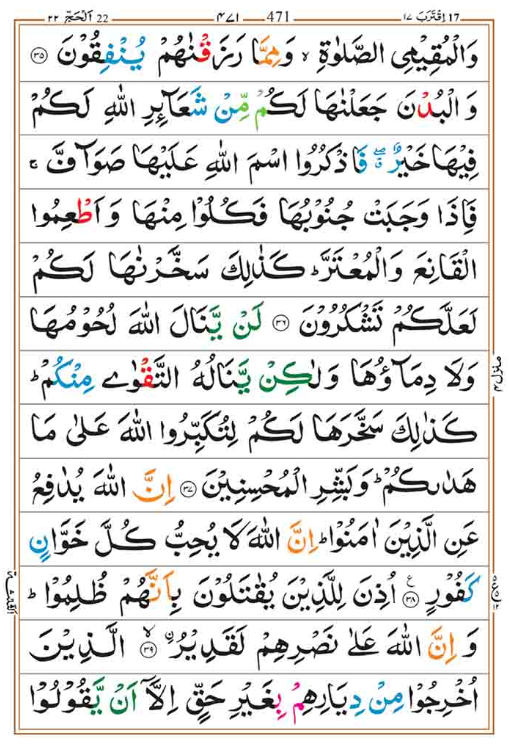 22 اَلْحَجّ ٢٢ — 471 — ٤٧١ — 17 اِقْتَرَبَ ١٧
وَالْمُقِيْمِى الصَّلٰوةِ ۙ وَمِمَّا رَزَقْنٰهُمْ يُنْفِقُوْنَ ۝۳۵
وَ الْبُدْنَ جَعَلْنٰهَا لَكُمْ مِّنْ شَعَآئِرِ اللّٰهِ لَكُمْ
فِيْهَا خَيْرٌ ۖۗ فَاذْكُرُوا اسْمَ اللّٰهِ عَلَيْهَا صَوَآفَّ ۚ
فَاِذَا وَجَبَتْ جُنُوْبُهَا فَكُلُوْا مِنْهَا وَ اَطْعِمُوا
الْقَانِعَ وَالْمُعْتَرَّ ؕ كَذٰلِكَ سَخَّرْنٰهَا لَكُمْ
لَعَلَّكُمْ تَشْكُرُوْنَ ۝۳۶ لَنْ يَّنَالَ اللّٰهَ لُحُوْمُهَا
وَلَا دِمَآؤُهَا وَلٰكِنْ يَّنَالُهُ التَّقْوٰى مِنْكُمْ ؕ
كَذٰلِكَ سَخَّرَهَا لَكُمْ لِتُكَبِّرُوا اللّٰهَ عَلٰى مَا
هَدٰٮكُمْ ؕ وَبَشِّرِ الْمُحْسِنِيْنَ ۝۳۷ اِنَّ اللّٰهَ يُدٰفِعُ
عَنِ الَّذِيْنَ اٰمَنُوْا ؕ اِنَّ اللّٰهَ لَا يُحِبُّ كُلَّ خَوَّانٍ
كَفُوْرٍ ۝۳۸ ع اُذِنَ لِلَّذِيْنَ يُقٰتَلُوْنَ بِاَنَّهُمْ ظُلِمُوْا ؕ
وَ اِنَّ اللّٰهَ عَلٰى نَصْرِهِمْ لَقَدِيْرُ ۙ ۝۳۹ الَّذِيْنَ
اُخْرِجُوْا مِنْ دِيَارِهِمْ بِغَيْرِ حَقٍّ اِلَّاۤ اَنْ يَّقُوْلُوْا
منزل ٤